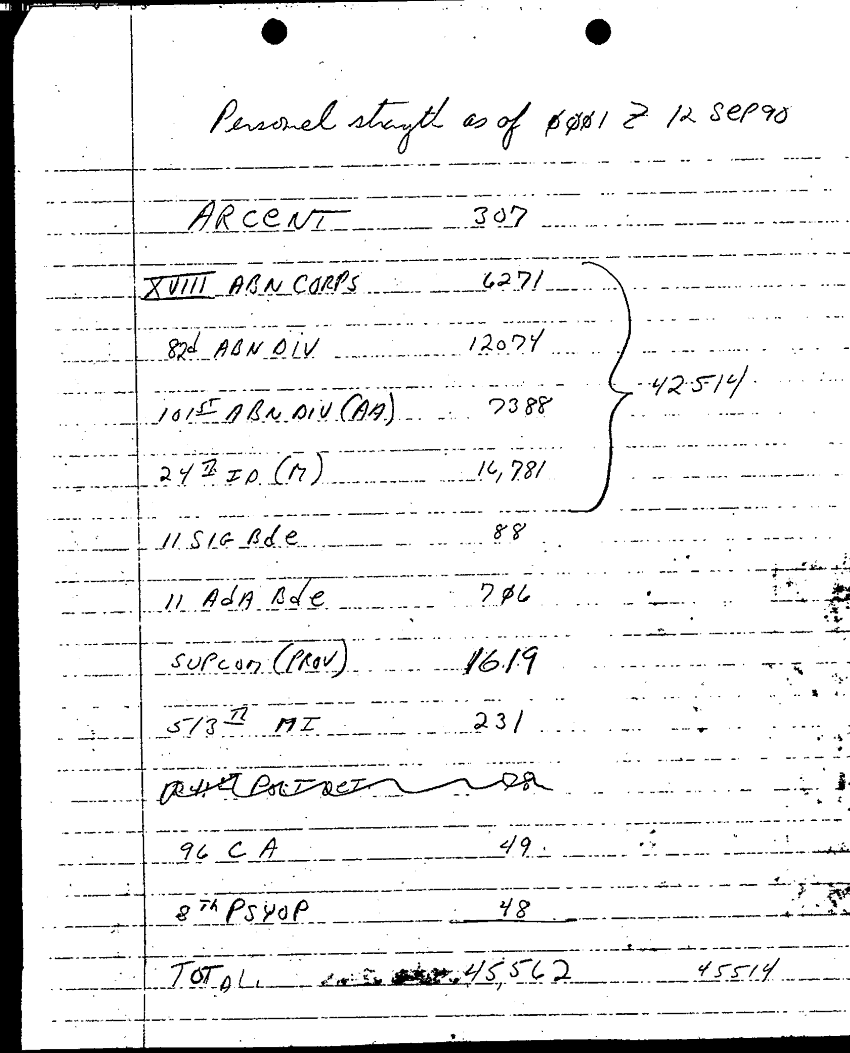 Personel strength as of 0001 Z 12 SeP 90
ARCeNT 307
XVIII ABN CORPS 6271
82d ABN DIV 12074
42514
101ST ABN DIV (AA) 7388
24th ID (M) 16,781
11 SIG Bde 88
11 AdA Bde 706
SUPCOM (PROV) 1619
513th MI 231
96 C A 49
8Th PSYOP 48
TOTAL 45,562 45514